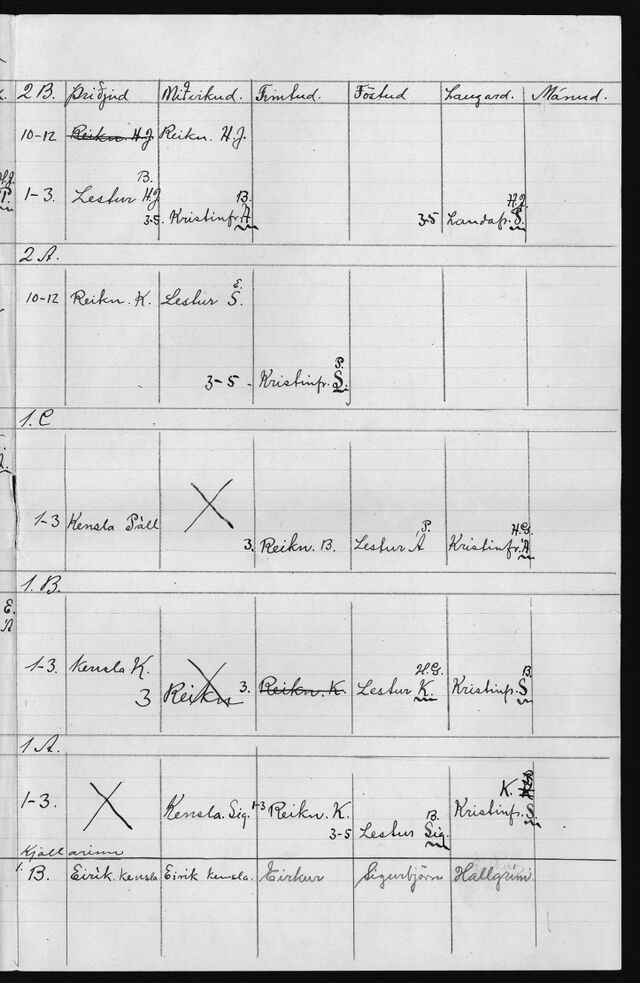 2 B. Þriðjud Miðvikud. Fimtud. Föstud Laugard. Mánud.
10-12 Reikn. H.J Reikn. H.J.
B. H.J
1-3. Lestur H.J B.
3-5. Kristinfr. A 3-5 Landafr. S.
2 A.
10-12 Reikn. K. Lestur S.
P.
3-5 - Kristinfr. S.
1. C
P. H.G.
1-3 Kensla Páll 3. Reikn. B. Lestur A Kristinfr. A
1. B.
E.
A
H.G. B.
1-3. Kensla K. 3. Reikn. K. Lestur K. Kristinfr. S
3 Reikn
1 A.
K.
1-3. Kensla. Sig. 1-3 Reikn. K. Kristinfr. S.
B.
3-5 Lestur Sig.
Kjallarinn
1. B. Eirík. kensla Eirík kensla. Eirkur Sigurbjörn Hallgrím